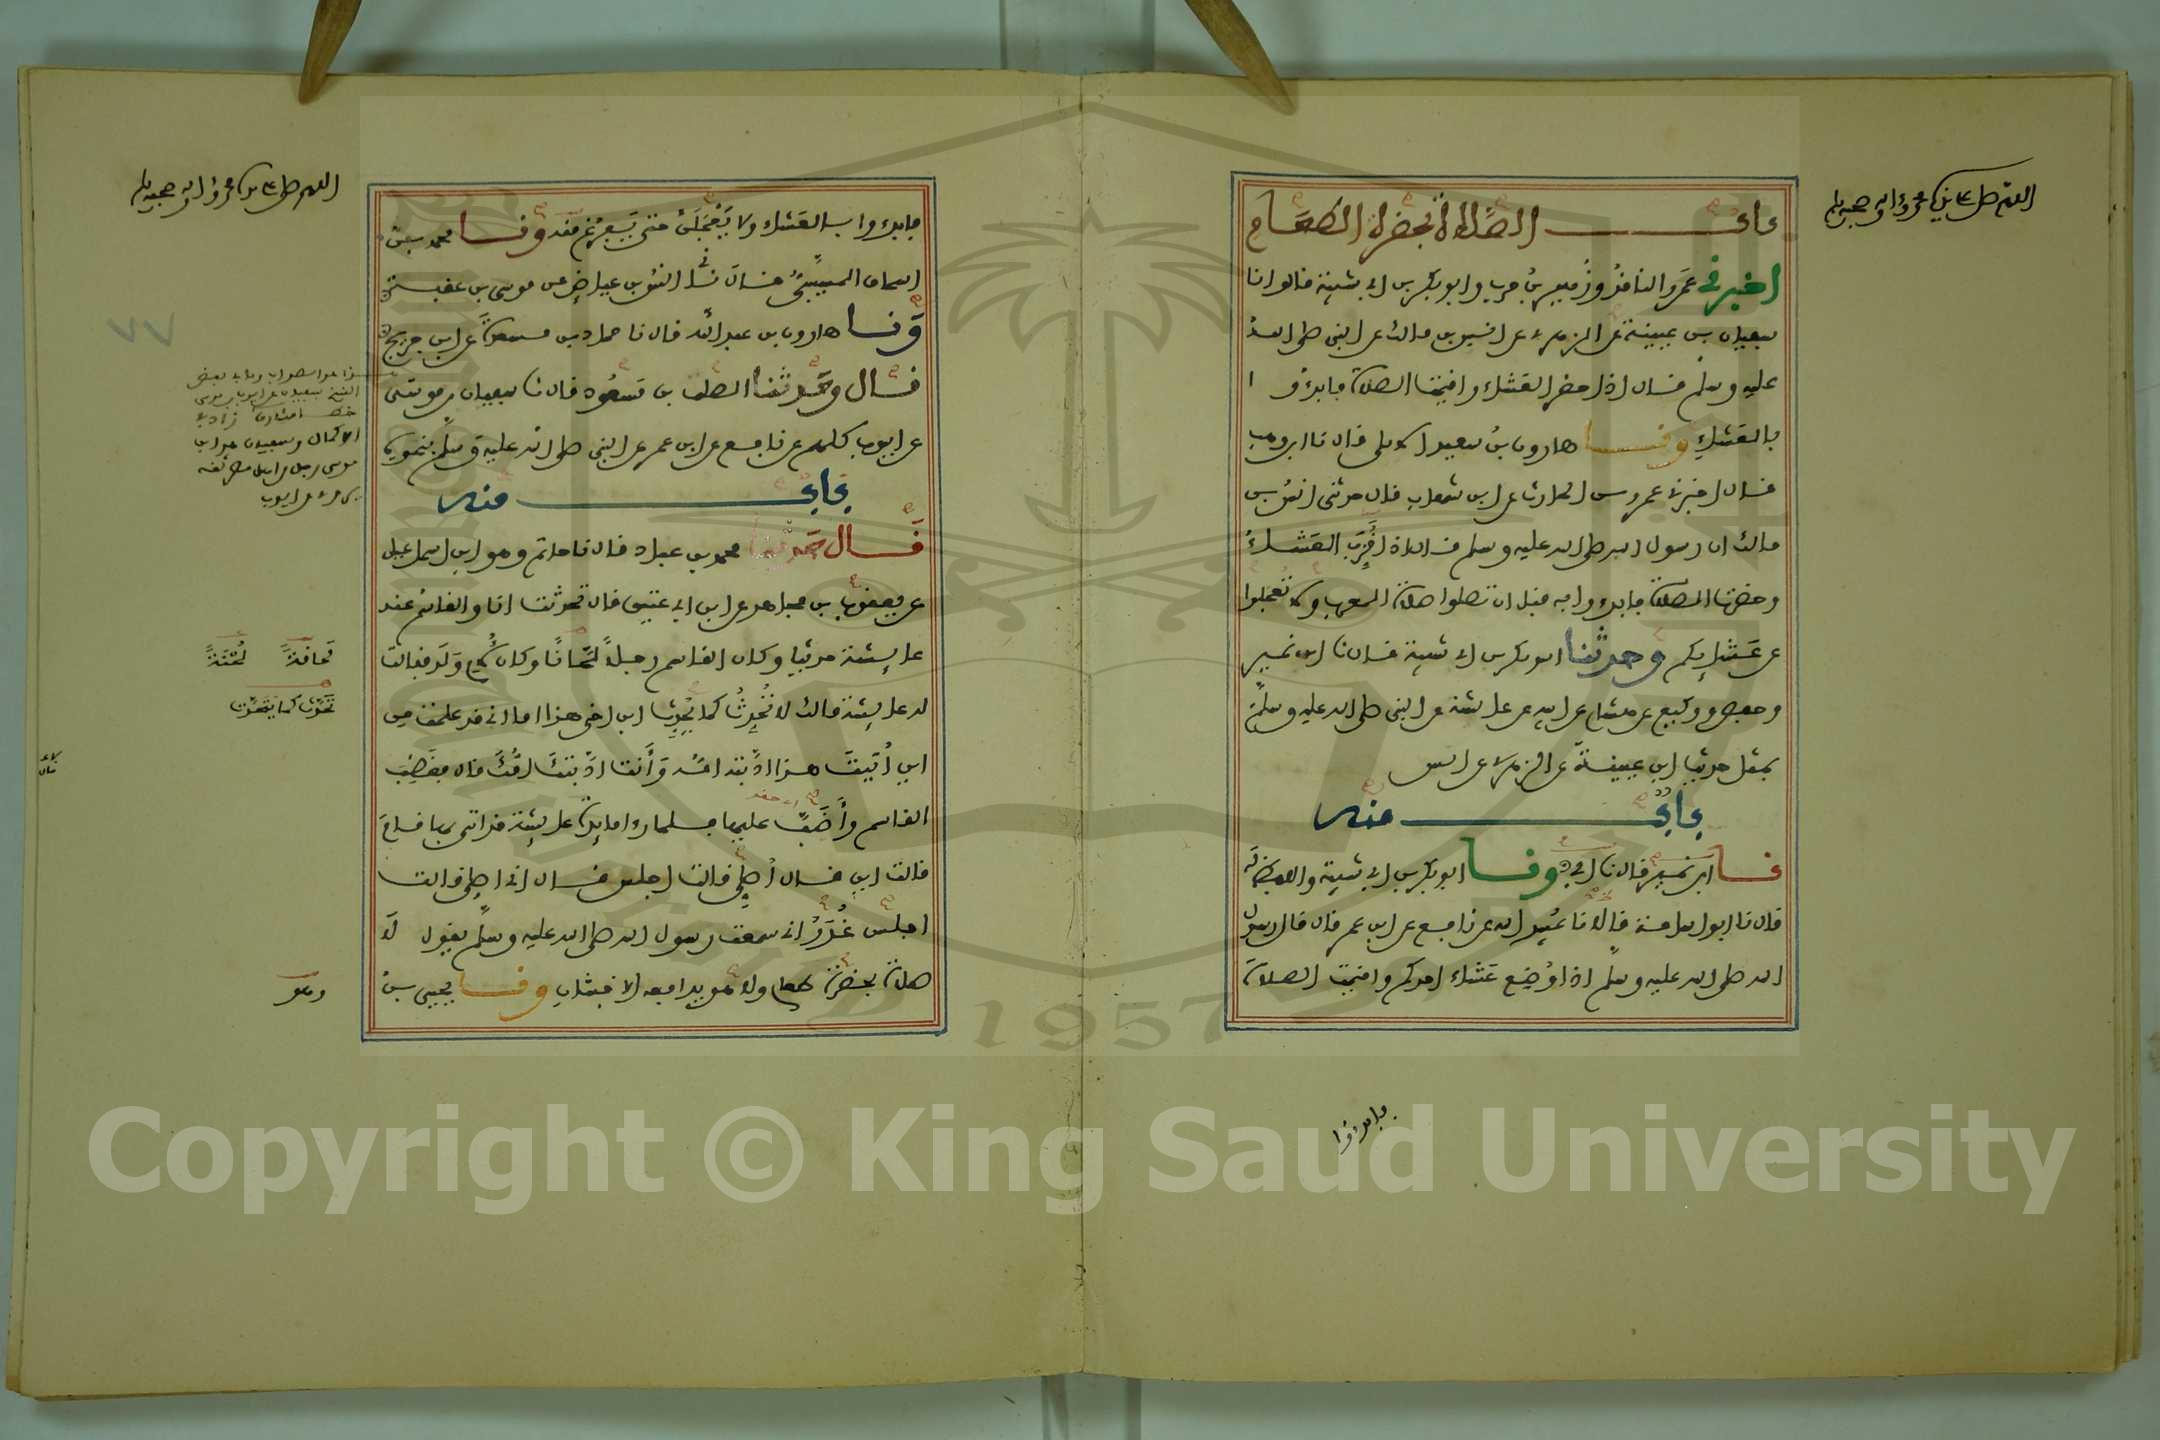 اللهم صل على سيدنا محمد وآله وصحبه وسلم
باب الصلاة بحضرة الطعام
اخبرني عمرو الناقد وزهير بن حرب وابو بكر بن ابي شيبة قالوا انا
سفيان بن عيينة عن الزهري عن انس بن مالك عن النبي صلى الله
عليه وسلم قال اذا حضر العشاء واقيمت الصلاة فابدءوا
بالعشاء ونا هارون بن سعيد الايلي قال نا ابن وهب
قال اخبرني عمرو بن الحارث عن ابن شهاب قال حدثني انس بن
مالك ان رسول الله صلى الله عليه وسلم قال اذا قرب العشاء
وحضرت الصلاة فابدءوا به قبل ان تصلوا صلاة المغرب ولا تعجلوا
عن عشائكم وحدثنا ابو بكر بن ابي شيبة قال نا ابن نمير
وحفص ووكيع عن هشام عن ابيه عن عائشة عن النبي صلى الله عليه وسلم
بمثل حديث ابن عيينة عن الزهري عن انس
باب منه
نا ابن نمير قال نا ابي ونا ابو بكر بن ابي شيبة واللفظ له
قال نا ابو اسامة قالا نا عبيد الله عن نافع عن ابن عمر قال قال رسول
الله صلى الله عليه وسلم اذا وضع عشاء احدكم واقيمت الصلاة
فابدءوا
اللهم صل على سيدنا محمد وآله وصحبه وسلم
فابدءوا بالعشاء ولا يعجلن حتى يفرغ منه ونا محمد بن
اسحاق المسيبي قال نا انس بن عياض عن موسى بن عقبة
ونا هارون بن عبد الله قال نا حماد بن مسعدة عن ابن جريج
قال وحدثنا الصلت بن مسعود قال نا سفيان بن موسى
عن ايوب كلهم عن نافع عن ابن عمر عن النبي صلى الله عليه وسلم بنحوه
باب منه
قال حدثنا محمد بن عباد قال نا حاتم وهو ابن اسماعيل
عن يعقوب بن مجاهد عن ابن ابي عتيق قال تحدثت انا والقاسم عند
عائشة حديثا وكان القاسم رجلا لحانا وكان لام ولد فقالت
له عائشة مالك لا تحدث كما يحدث ابن اخي هذا اما اني قد علمت من
اين اتيت هذا ادبته امه وانت ادبتك امك قال فغضب
القاسم واضب عليها فلما راى مائدة عائشة قد اتي بها قام
قالت اين قال اصلي قالت اجلس قال اني اصلي قالت
اجلس غدر اني سمعت رسول الله صلى الله عليه وسلم يقول لا
صلاة بحضرة طعام ولا هو يدافعه الاخبثان ونا يحيى بن
لحانة لحنة
تحدث كما يتحدث
٧٧
1957
Copyright © King Saud University